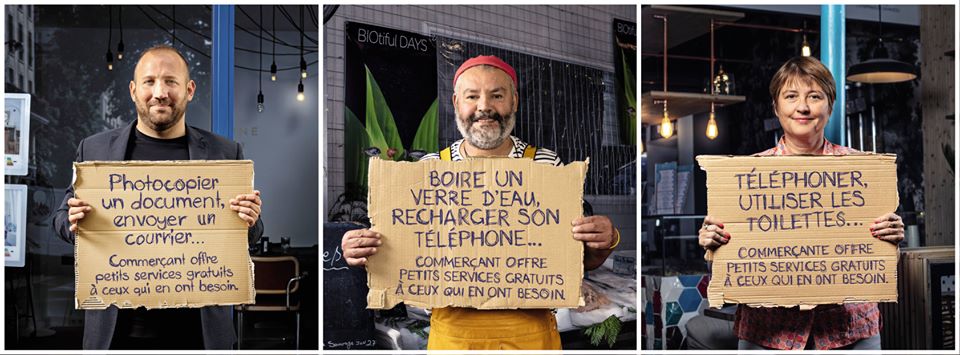 Photocopier
un document,
envoyer un
courrier...
Commerçant offre
petits services gratuits
à ceux qui en ont besoin.
BIOtiful DAYS
BIOtiful
BOIRE UN
VERRE D'EAU,
RECHARGER SON
TÉLÉPHONE...
COMMERÇANT OFFRE
PETITS SERVICES GRATUITS
À CEUX QUI EN ONT BESOIN.
TÉLÉPHONER,
UTILISER LES
TOILETTES...
COMMERÇANTE OFFRE
PETITS SERVICES GRATUITS
À CEUX QUI EN ONT BESOIN.